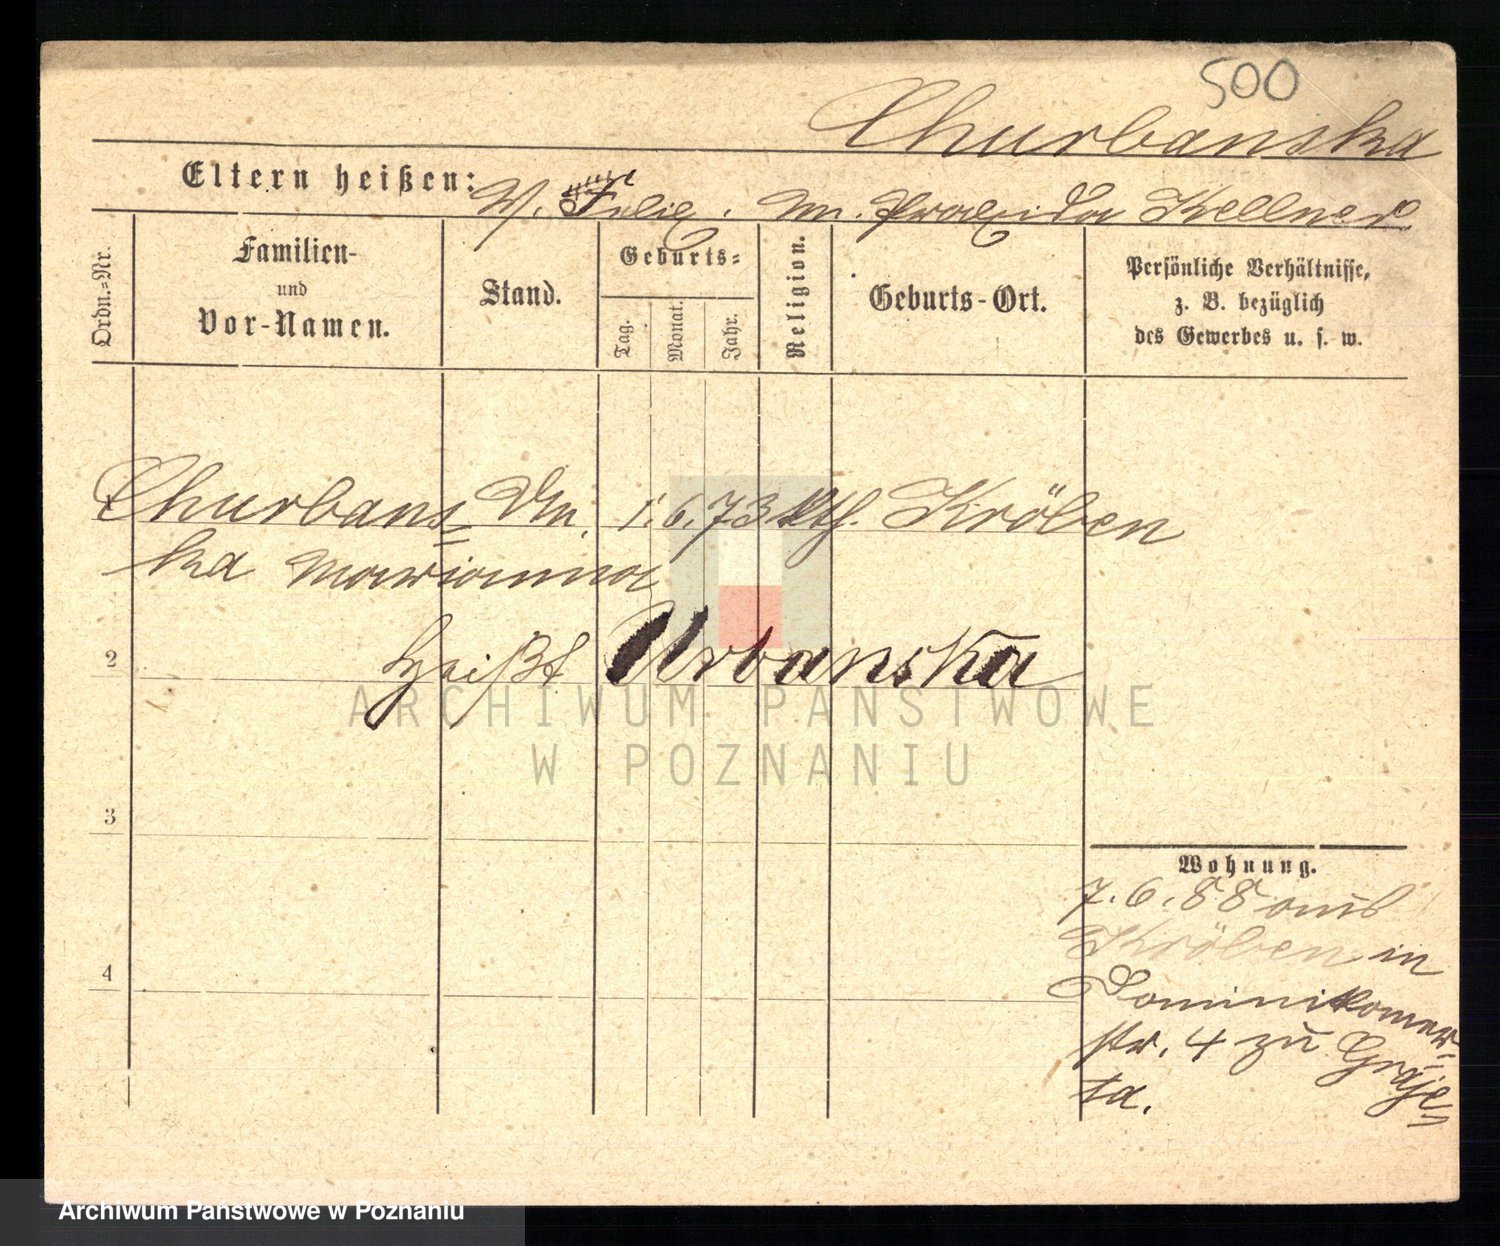 500
Churbanska
Eltern heißen: V. Felix. M. Praxeda Kellner
Ordn.=Nr.
Familien-
und
Vor-Namen.
Stand.
Geburts=
Tag.
Monat.
Jahr.
Religion.
Geburts-Ort.
Persönliche Verhältnisse,
z. B. bezüglich
des Gewerbes u. s. w.
Churbans= 1. 6. 73 kth. Kröben
ka Marianna
2 heißt Urbanska
ARCHIWUM PAŃSTWOWE
W POZNANIU
3
Wohnung.
7. 6. 88 aus
Kröben in
4
Dominikaner-
str. 4 zu Graje=
ta.
Archiwum Państwowe w Poznaniu